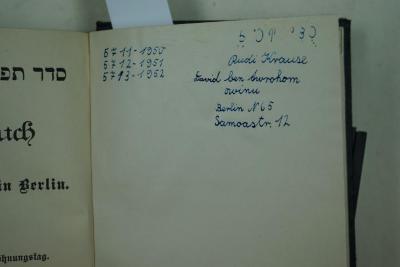 סדר תפ
utch
in Berlin.
öhnungstag.
5711-1950
5712-1951
5713-1952
Rudi Krause
David ben awrohom
owinu
Berlin N 65
Samoastr. 12